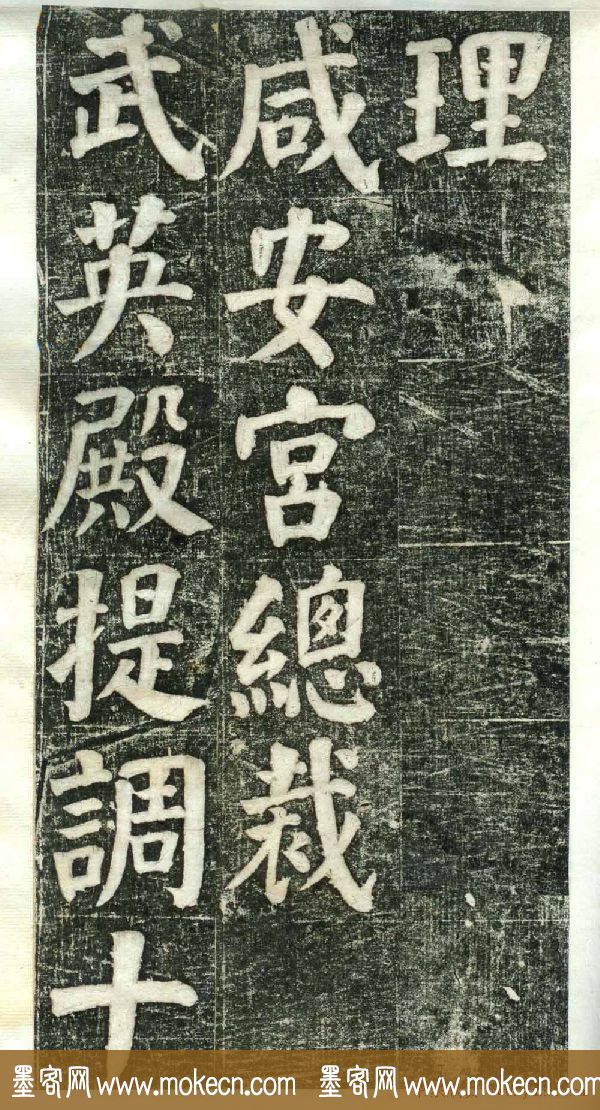 理
咸安宮總裁
武英殿提調十
墨客网 www.mokecn.com 墨客网 www.mokecn.com